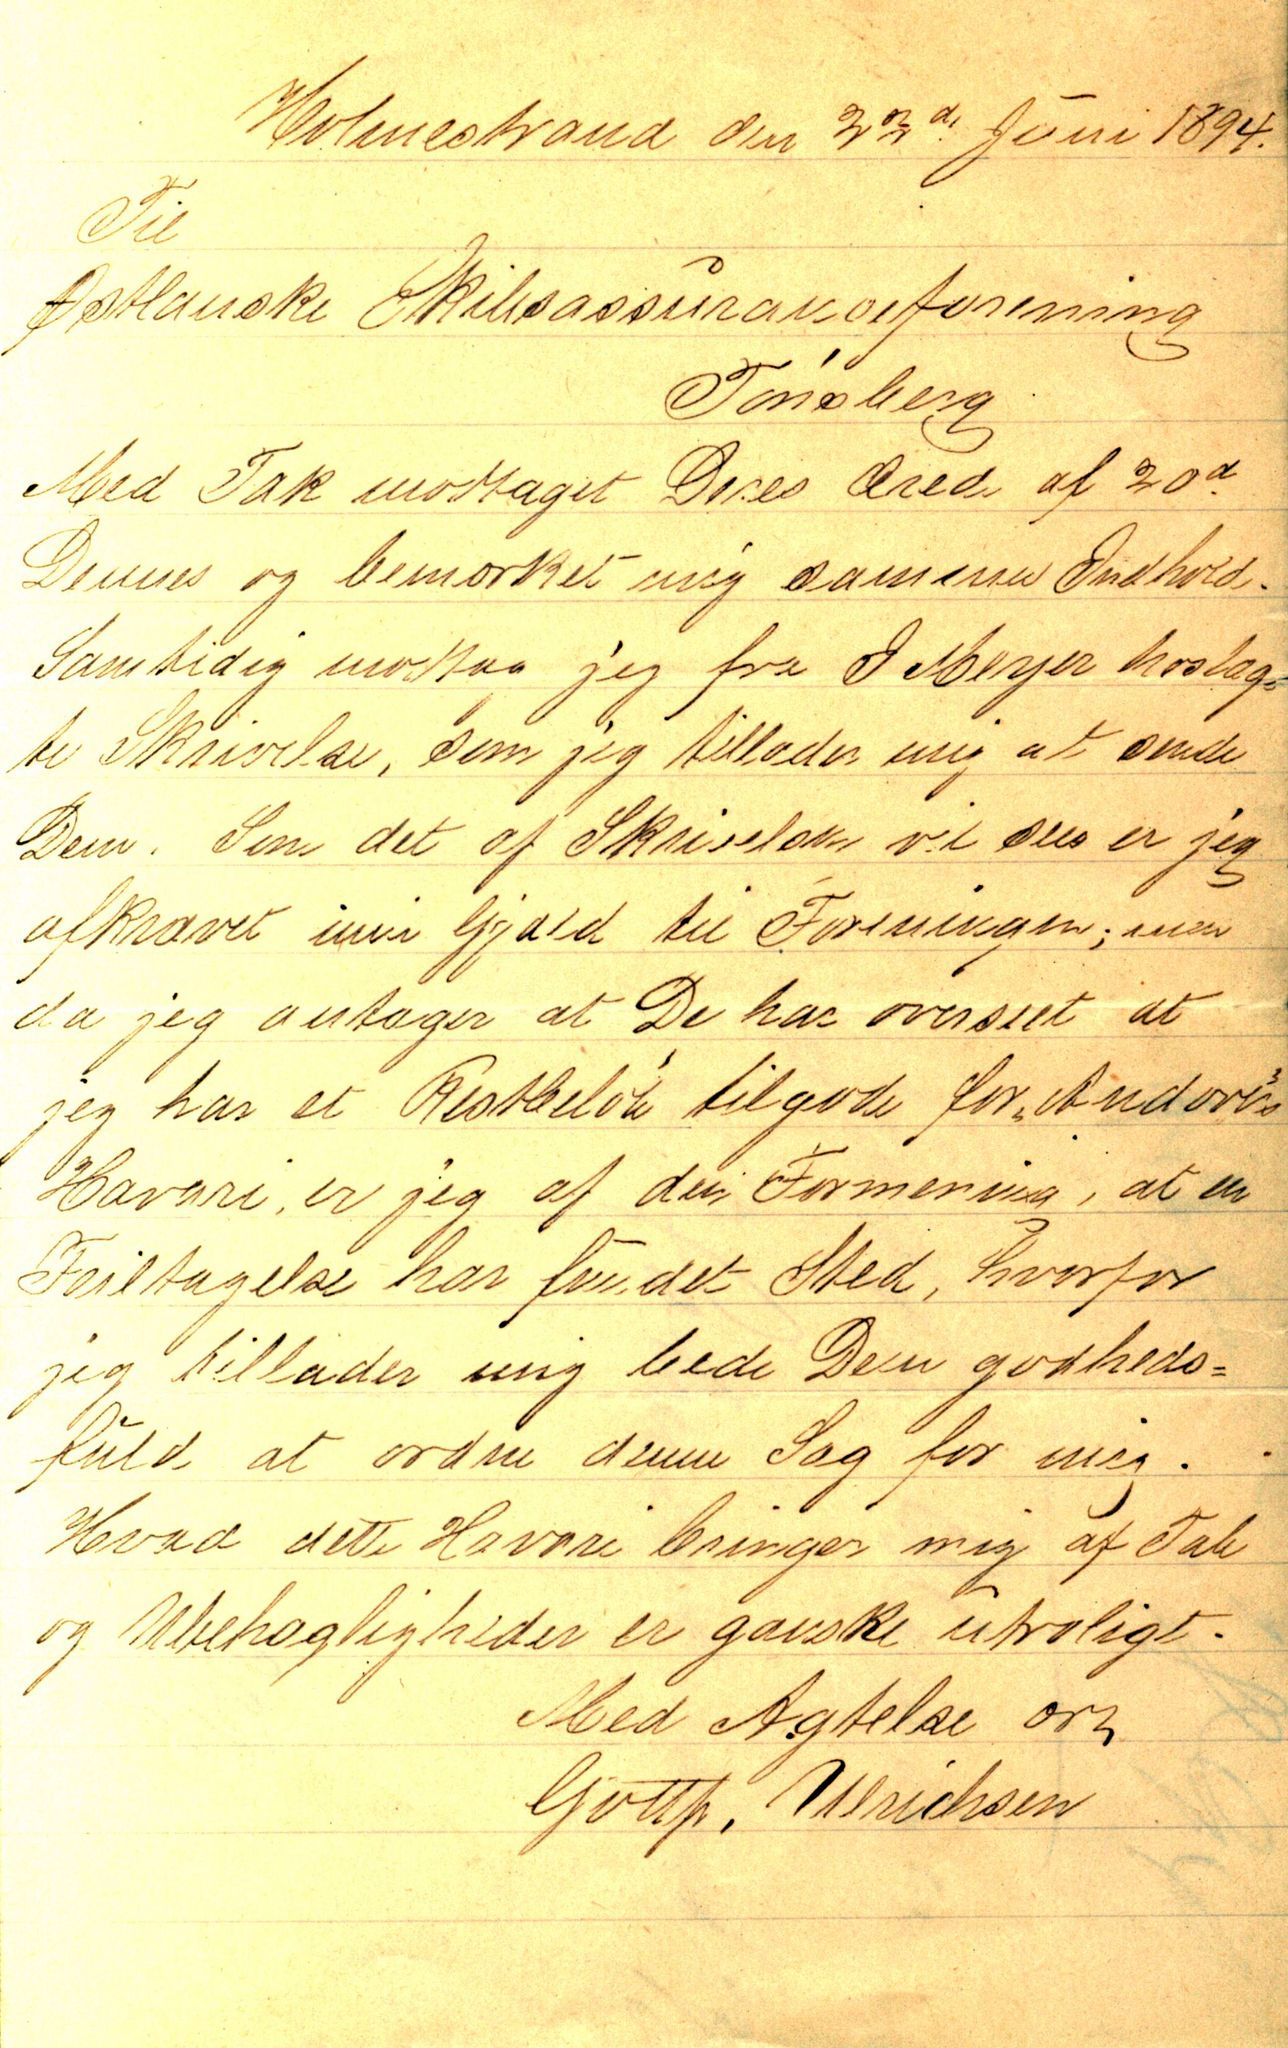 Holmestrand den 22d. Juni 1894.
Til
Østlanske Skibsassuranceforening
Tønsberg
Med Tak mottaget Deres Ærede af 20d.
Dennes og bemærket mig sammes Indhold.
Samtidig mottog jeg fra J Meyer hoslag=
te Skrivelse, som jeg tillader mig at sende
Dem. Som det af Skrivelsen vil sees er jeg
afkrævet min Gjæld til Foreningen; men
da jeg antager at De har overseet at
jeg har et Restbeløb tilgode for „Andovers"
Havari, er jeg af den Formening, at en
Feiltagelse har fundet Sted, hvorfor
jeg tillader mig bede Dem godheds=
fuld at ordne denne Sag for mig.
Hvad dette Havari bringer mig af Tab
og Ubehagligheder er ganske utroligt.
Med Agtelse
Ulrichsen